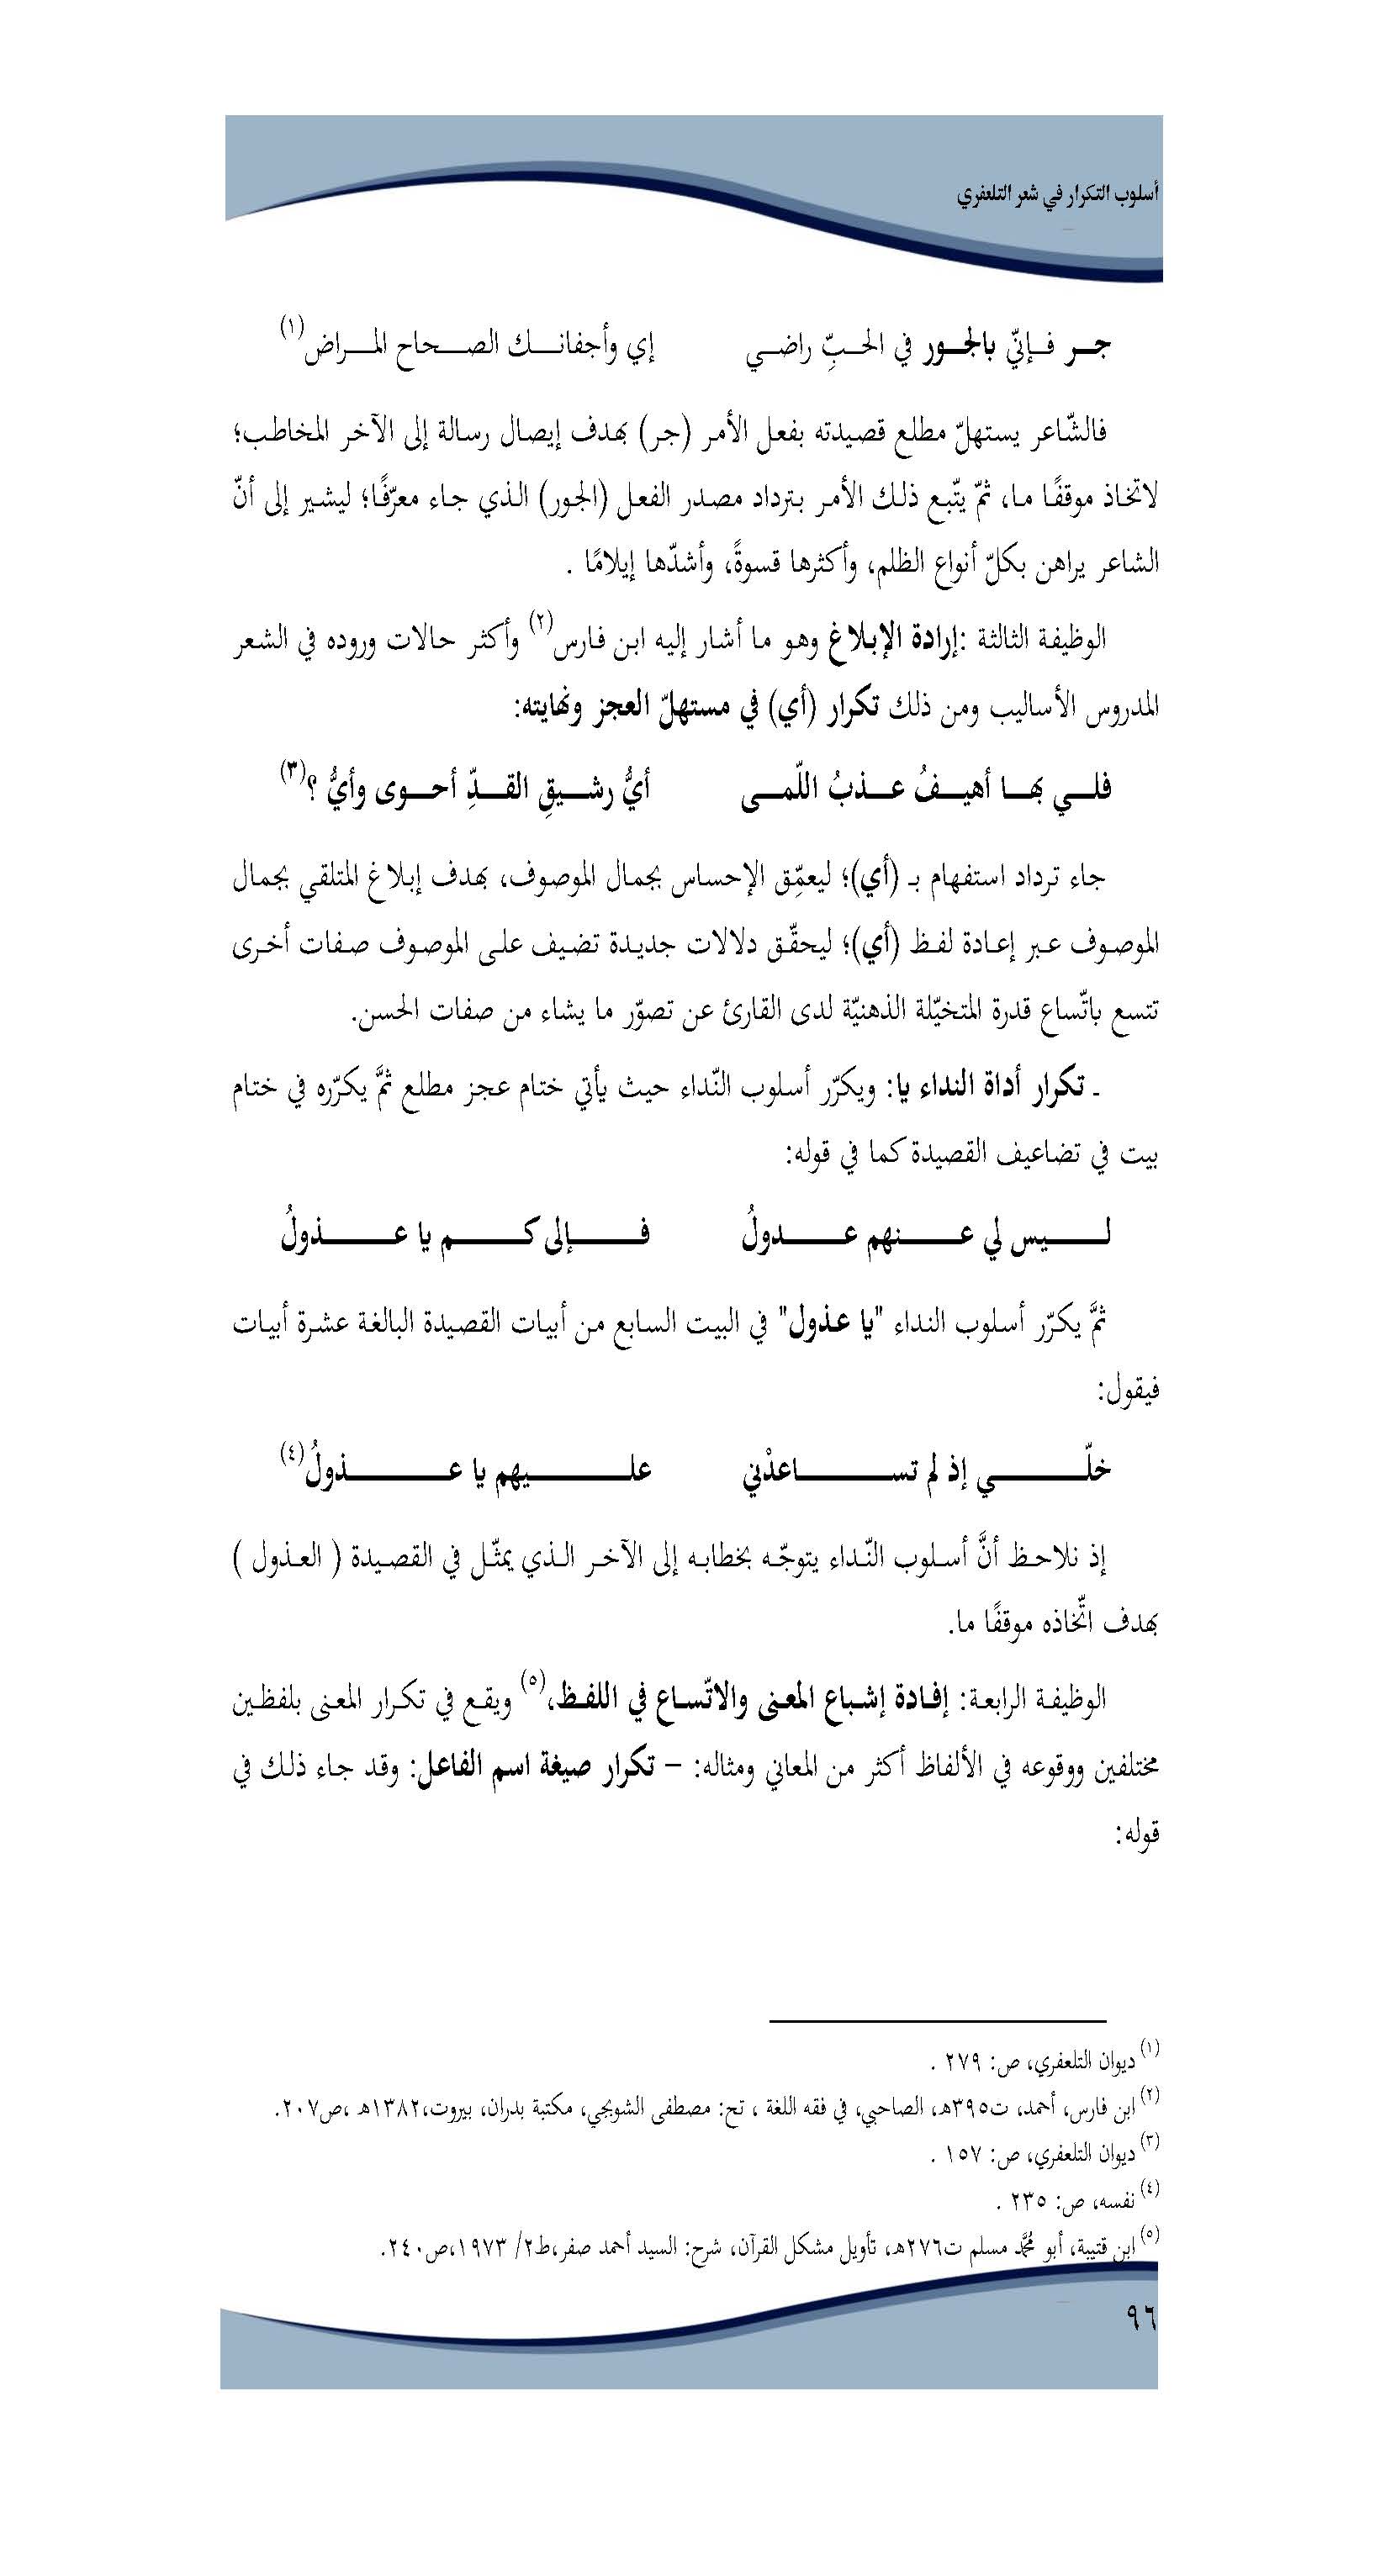 أسلوب التكرار في شعر التلعفري
جر فإنّي بالجور في الحبِّ راضي إي وأجفانك الصحاح المراض(١)
فالشّاعر يستهلّ مطلع قصيدته بفعل الأمر (جر) بهدف إيصال رسالة إلى الآخر المخاطب؛
لاتخاذ موقفًا ما، ثمّ يتّبع ذلك الأمر بترداد مصدر الفعل (الجور) الذي جاء معرّفًا؛ ليشير إلى أنّ
الشاعر يراهن بكلّ أنواع الظلم، وأكثرها قسوةً، وأشدّها إيلامًا .
الوظيفة الثالثة :إرادة الإبلاغ وهو ما أشار إليه ابن فارس(٢) وأكثر حالات وروده في الشعر
المدروس الأساليب ومن ذلك تكرار (أي) في مستهلّ العجز ونهايته:
فلي بها أهيفُ عذبُ اللّمى أيُّ رشيقِ القدِّ أحوى وأيُّ ؟(٣)
جاء ترداد استفهام بـ (أي)؛ ليعمِّق الإحساس بجمال الموصوف، بهدف إبلاغ المتلقي بجمال
الموصوف عبر إعادة لفظ (أي)؛ ليحقّق دلالات جديدة تضيف على الموصوف صفات أخرى
تتسع باتّساع قدرة المتخيّلة الذهنيّة لدى القارئ عن تصوّر ما يشاء من صفات الحسن.
ـ تكرار أداة النداء يا: ويكرّر أسلوب النّداء حيث يأتي ختام عجز مطلع ثمَّ يكرّره في ختام
بيت في تضاعيف القصيدة كما في قوله:
ليس لي عنهم عدولُ فإلى كم يا عذولُ
ثمَّ يكرّر أسلوب النداء "يا عذول" في البيت السابع من أبيات القصيدة البالغة عشرة أبيات
فيقول:
خلّي إذ لم تساعدْني عليهم يا عذولُ(٤)
إذ نلاحظ أنَّ أسلوب النّداء يتوجّه بخطابه إلى الآخر الذي يمثّل في القصيدة ( العذول )
بهدف اتّخاذه موقفًا ما.
الوظيفة الرابعة: إفادة إشباع المعنى والاتّساع في اللفظ،(٥) ويقع في تكرار المعنى بلفظين
مختلفين ووقوعه في الألفاظ أكثر من المعاني ومثاله: – تكرار صيغة اسم الفاعل: وقد جاء ذلك في
قوله:
(١) ديوان التلعفري، ص: ٢٧٩ .
(٢) ابن فارس، أحمد، ت٣٩٥هـ، الصاحبي، في فقه اللغة ، تح: مصطفى الشويجي، مكتبة بدران، بيروت،١٣٨٢هـ ،ص٢٠٧.
(٣) ديوان التلعفري، ص: ١٥٧ .
(٤) نفسه، ص: ٢٣٥ .
(٥) ابن قتيبة، أبو محمَّد مسلم ت٢٧٦هـ، تأويل مشكل القرآن، شرح: السيد أحمد صفر،ط٢/ ١٩٧٣،ص٢٤٠.
٩٦